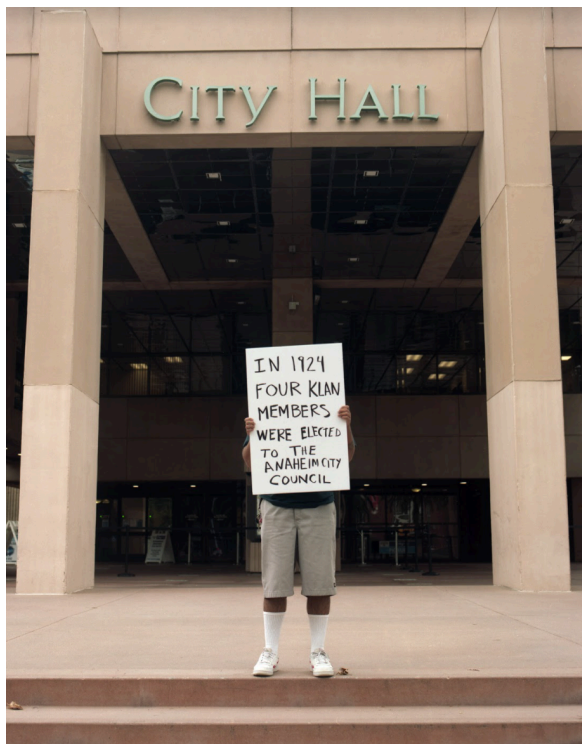 CITY HALL
IN 1924
FOUR KLAN
MEMBERS
WERE ELECTED
TO THE
ANAHEIM CITY
COUNCIL